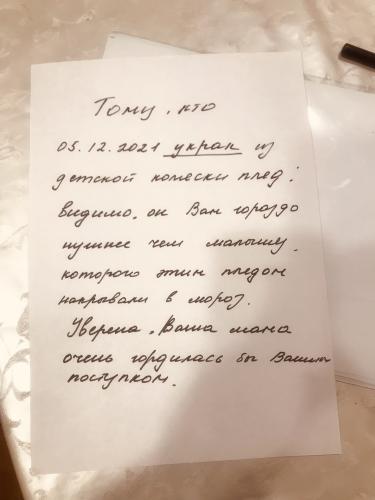 Тому, кто
05.12.2021 украл из
детской коляски плед:
видимо, он Вам гораздо
нужнее чем малышу,
которого этим пледом
накрывали в мороз.
Уверена, Ваша мама
очень гордилась бы Вашим
поступком.